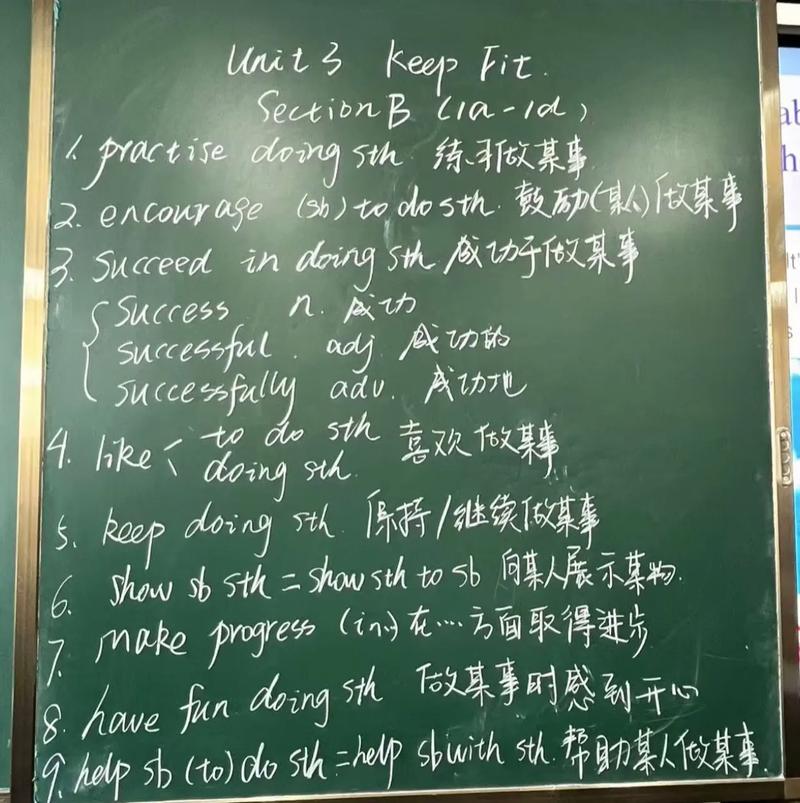 Unit 3 Keep Fit.
Section B (1a-1d)
1. practise doing sth 练习做某事
2. encourage (sb) to do sth. 鼓励(某人)做某事
3. succeed in doing sth 成功于做某事
success n. 成功
successful. adj. 成功的
successfully adv. 成功地
4. like to do sth 喜欢做某事
doing sth.
5. keep doing sth. 保持/继续做某事
6. show sb sth = show sth to sb 向某人展示某物.
7. make progress (in) 在…方面取得进步
8. have fun doing sth 做某事时感到开心
9. help sb (to) do sth = help sb with sth. 帮助某人做某事.
ab
h
It'